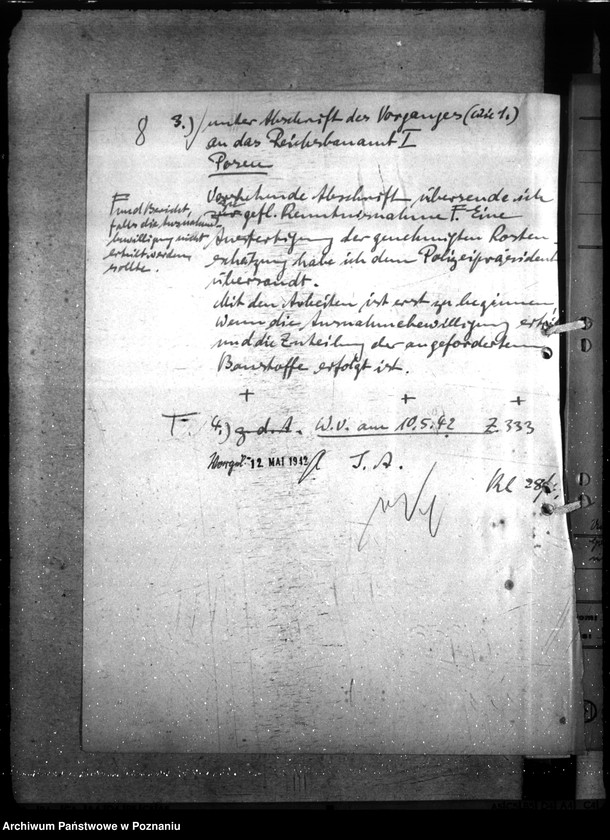 8
3.) unter Abschrift des Vorganges (wie 1.)
an das Reichsbauamt I
Posen
F und Bericht,
falls die Ausnahme-
bewilligung nicht
erteilt werden
sollte.
Vorstehende Abschrift übersende ich
zur gefl. Kenntnisnahme F. Eine
Ausfertigung der genehmigten Kosten-
schätzung habe ich dem Polizeipräsidenten
übersandt.
Mit den Arbeiten ist erst zu beginnen,
wenn die Ausnahmebewilligung
und die Zuteilung der angeforderten
Baustoffe erfolgt ist.
+ + +
4.) z. d. A. W.V. am 10.5.42 Z 333
Vorgel. 12. MAI 1942
I. A.
Kl 28/
Archiwum Państwowe w Poznaniu